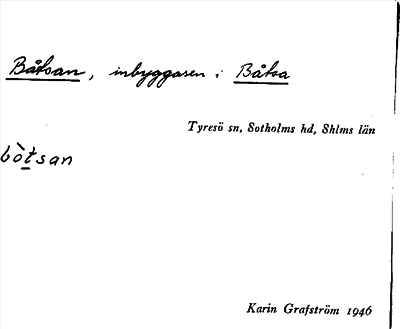 Båtsan, inbyggaren i Båtsa
Tyresö sn, Sotholms hd, Shlms län
bò̀tsan
Karin Grafström 1946